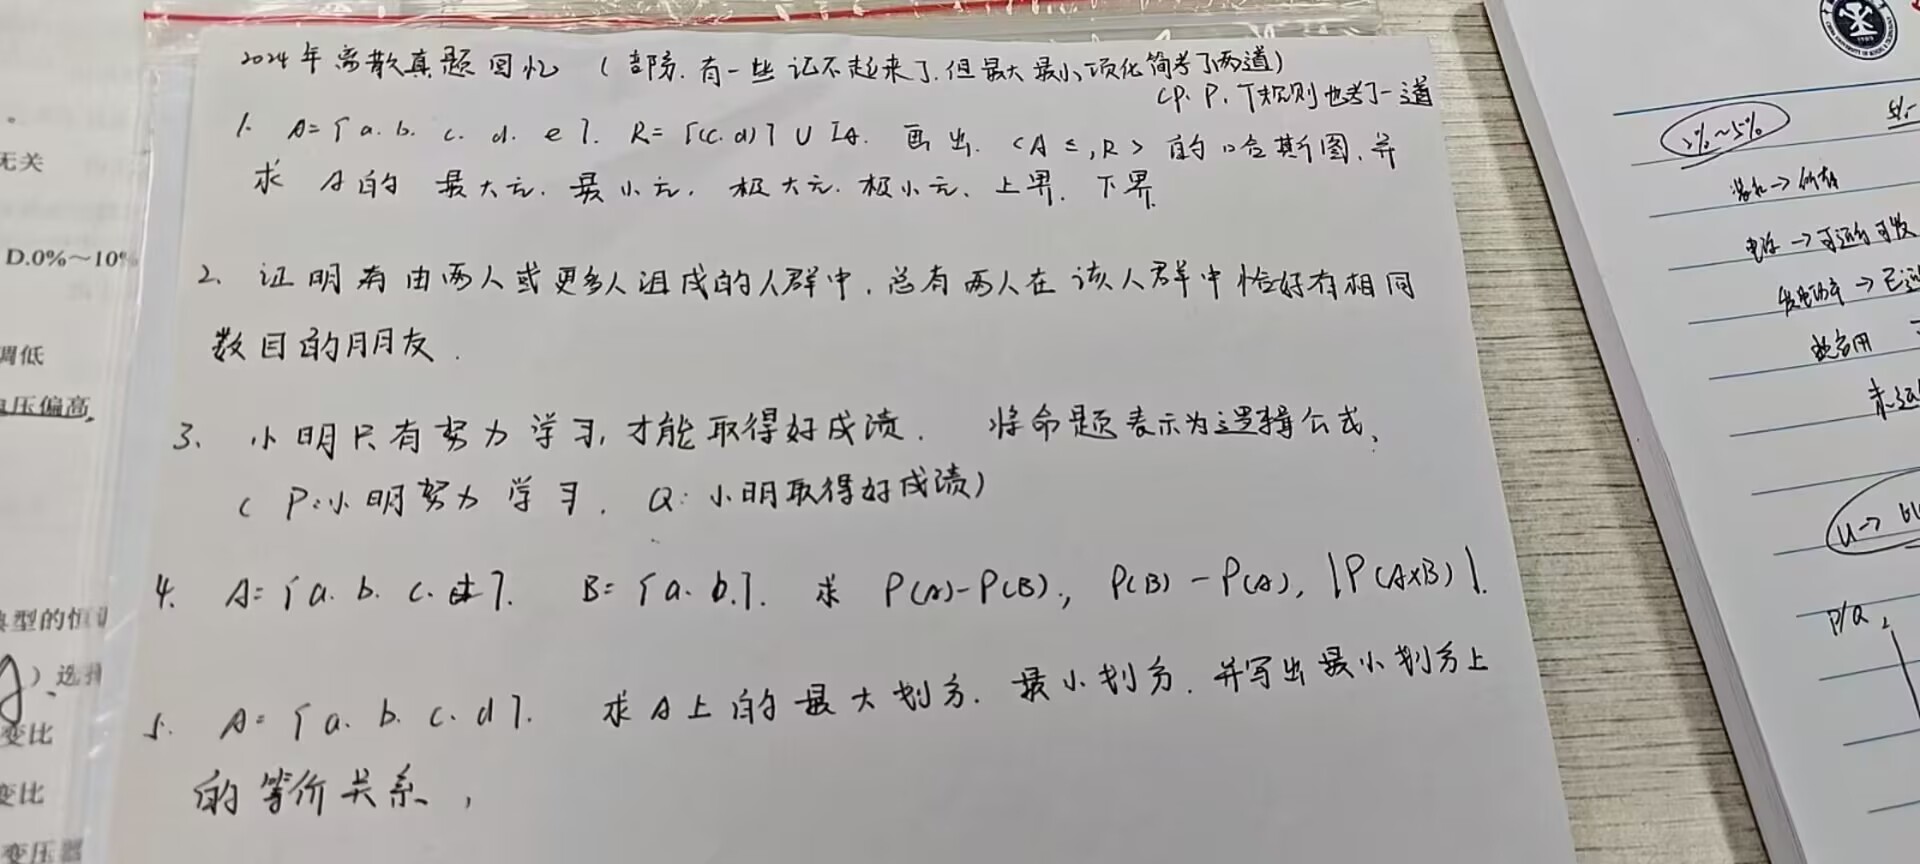 2024年离散真题回忆 (部分.有一些记不起来了.但最大最小项化简考了两道)
CP. P. T规则也考了一道
1. A={a. b. c. d. e}. R={(c.d)} ∪ IA. 画出.<A ≤,R>的哈斯图.并
求 A的 最大元. 最小元. 极大元. 极小元. 上界. 下界.
2. 证明在由两人或更多人组成的人群中.总有两人在该人群中恰好有相同
数目的朋友.
3. 小明只有努力学习,才能取得好成绩. 将命题表示为逻辑公式.
( P:小明努力学习. Q:小明取得好成绩)
4. A={a. b. c. }. B={a. b.}. 求 P(A)-P(B), P(B)-P(A), |P(A×B)|.
5. A={a. b. c. d}. 求A上的最大划分.最小划分.并写出最小划分上
的等价关系,
无关
D.0%~10%
调低
压偏高
典型的恒
)选择
变比
变比
变压器
2%~5%
电压→可逆可变
P/Q
U→